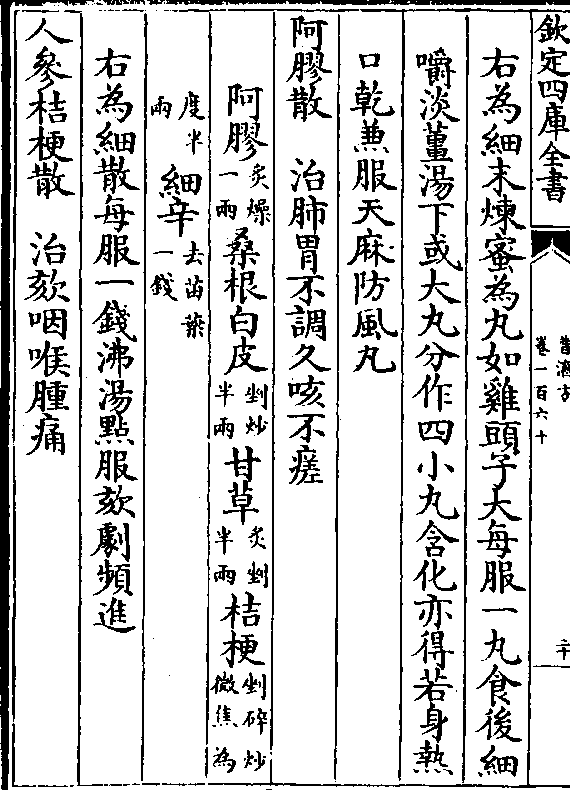 欽定四庫全書 普濟方卷一百六十 二十
右為細末煉蜜為丸如雞頭子大每服一丸食後細
嚼淡薑湯下或大丸分作四小丸含化亦得若身熱
口乾兼服天麻防風丸
阿膠散 治肺胃不調久咳不瘥
阿膠炙燥一兩 桑根白皮剉炒半兩 甘草炙剉半兩 桔梗剉碎炒微焦為
度半兩 細辛去苗葉一錢
右為細散每服一錢沸湯點服欬劇頻進
人參桔梗散 治欬咽喉腫痛